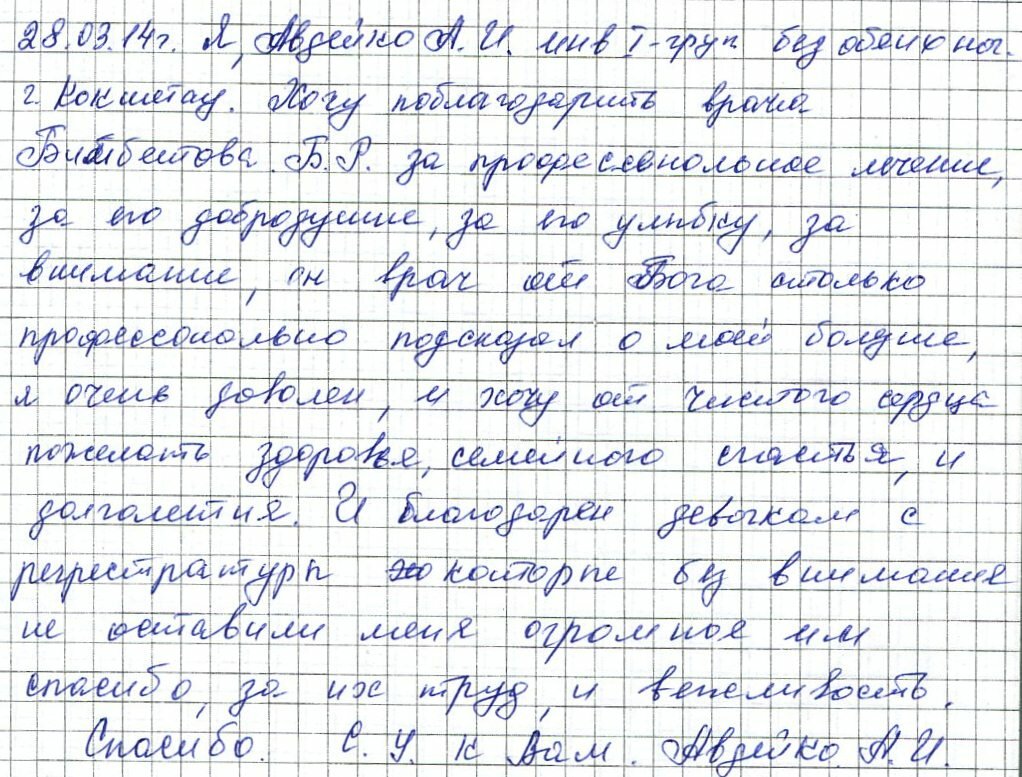 28.03.14г. Я, Авдейко А.И. инв I-груп без обеих ног.
г. Кокшетау. Хочу поблагодарить врача
Бимбетова Б.Р. за профессеональное лечение,
за его добродушие, за его улыбку, за
внимание, он врач от Бога столько
професесонально подсказал о моей болячке,
я очень доволен, и хочу от чистого сердца
пожелать здоровья, семейного счастья, и
долголетия. И благодарен девочкам с
регрестратуры которые без внимания
не оставили меня огромное им
спасибо, за их труд, и вежливость.
Спасибо. С.У. к Вам. Авдейко А.И.